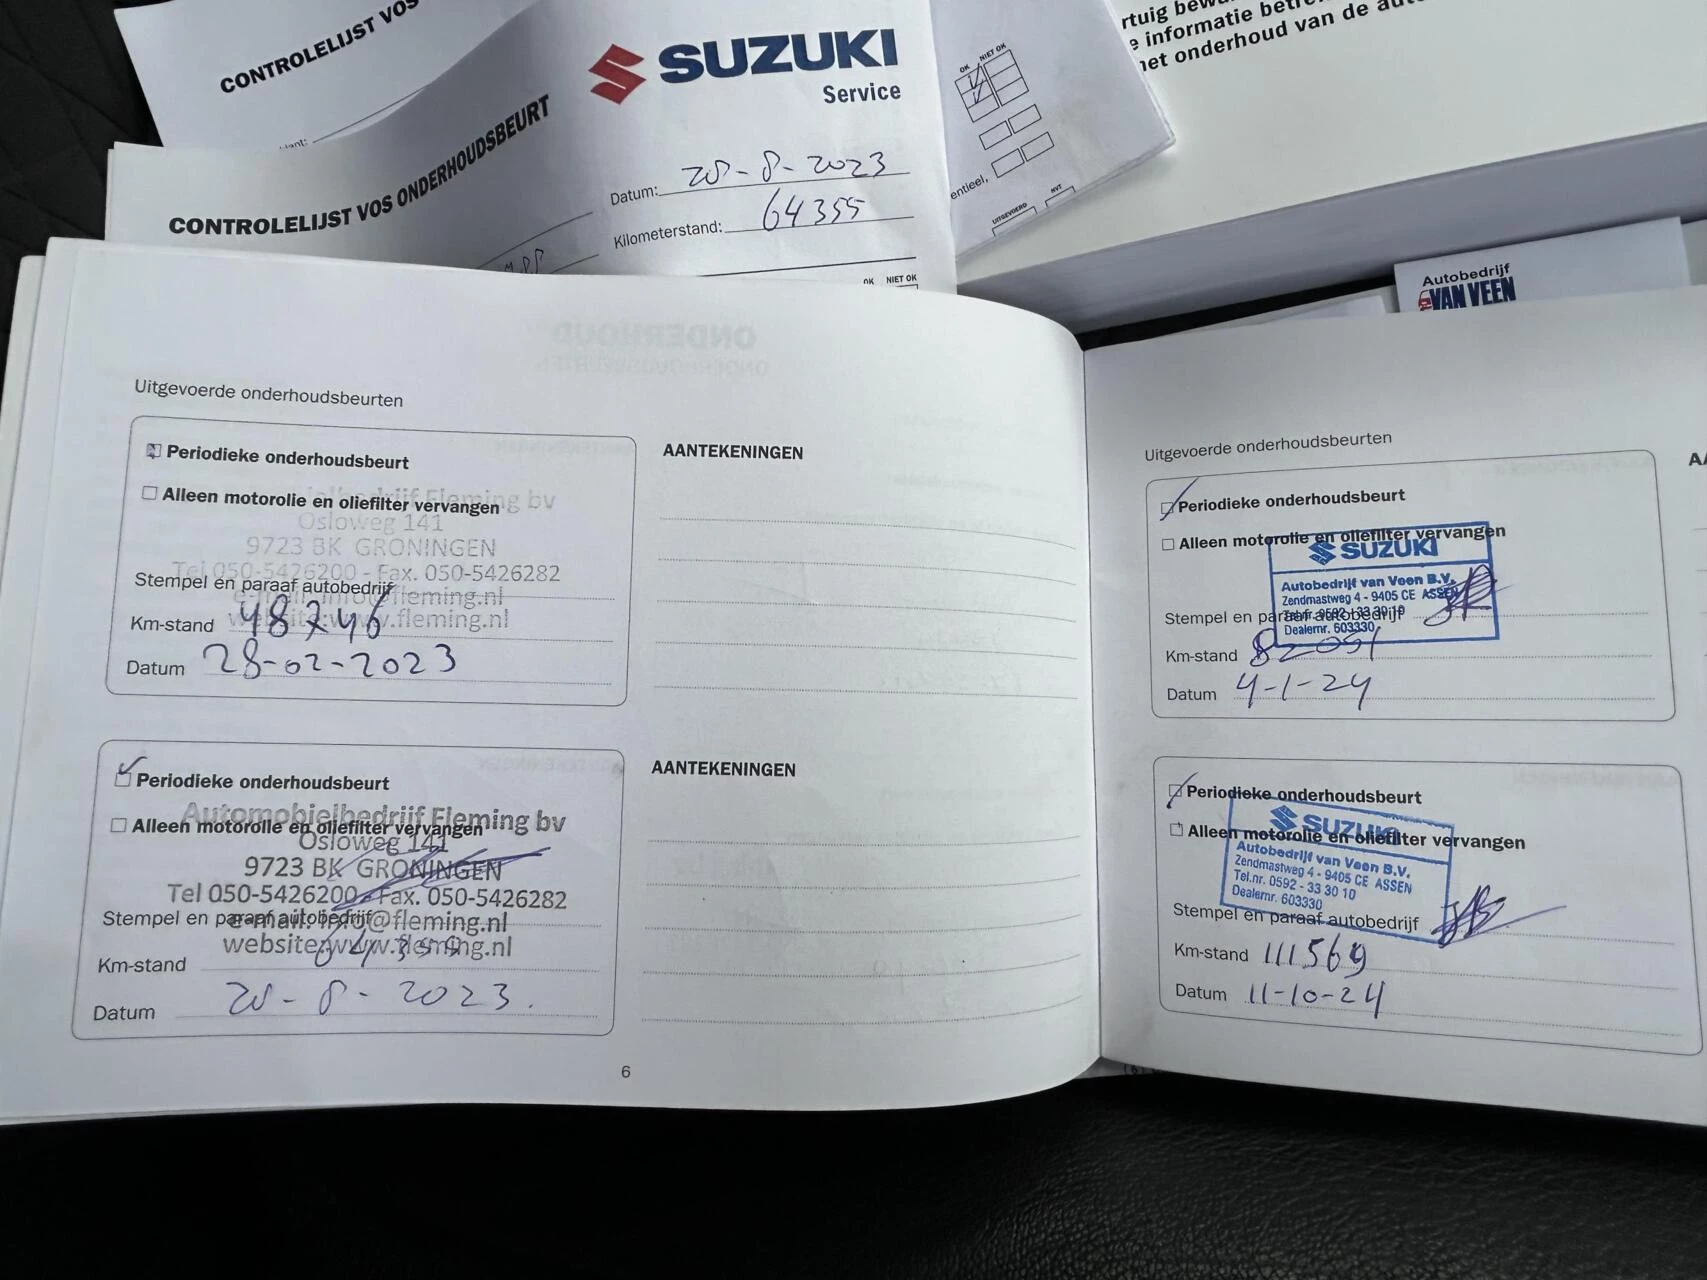 CONTROLELIJST VOS
SUZUKI
Service
CONTROLELIJST VOS ONDERHOUDSBEURT
Datum: 28-8-2023
Kilometerstand: 64355
OK NIET OK
OK NIET OK
entieel,
UITGEVOERD NVT
e informatie
het onderhoud van de
Autobedrijf
VAN VEEN
Uitgevoerde onderhoudsbeurten
Periodieke onderhoudsbeurt
Alleen motorolie en oliefilter vervangen
Automobielbedrijf Fleming bv
Osloweg 141
9723 BK GRONINGEN
Tel 050-5426200 - Fax. 050-5426282
Stempel en paraaf autobedrijf
e-mail: info@fleming.nl
website: www.fleming.nl
Km-stand 48746
Datum 28-02-2023
AANTEKENINGEN
Periodieke onderhoudsbeurt
Automobielbedrijf Fleming bv
Alleen motorolie en oliefilter vervangen
Osloweg 141
9723 BK GRONINGEN
Tel 050-5426200 - Fax. 050-5426282
Stempel en paraaf autobedrijf
e-mail: info@fleming.nl
website: www.fleming.nl
Km-stand 64355
Datum 28-8-2023.
AANTEKENINGEN
6
Uitgevoerde onderhoudsbeurten
Periodieke onderhoudsbeurt
Alleen motorolie en oliefilter vervangen
SUZUKI
Autobedrijf van Veen B.V.
Zendmastweg 4 - 9405 CE ASSEN
Tel.nr. 0592 - 33 30 10
Dealernr. 603330
Stempel en paraaf autobedrijf
Km-stand 82051
Datum 4-1-24
Periodieke onderhoudsbeurt
Alleen motorolie en oliefilter vervangen
SUZUKI
Autobedrijf van Veen B.V.
Zendmastweg 4 - 9405 CE ASSEN
Tel.nr. 0592 - 33 30 10
Dealernr. 603330
Stempel en paraaf autobedrijf
Km-stand 111569
Datum 11-10-24